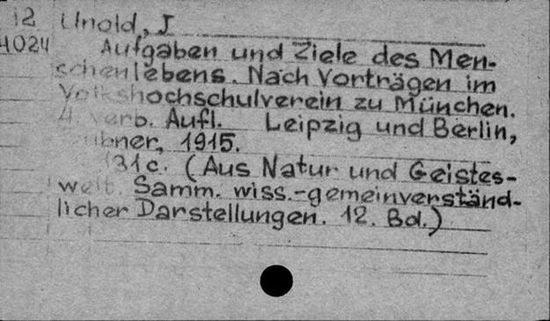 12 Unold, J
4024 Aufgaben und Ziele des Men-
schenlebens. Nach Vorträgen im
Volkshochschulverein zu München.
4. verb. Aufl. Leipzig und Berlin,
1915.
131 c. (Aus Natur und Geistes-
welt. Samm. wiss.-gemeinverständ-
licher Darstellungen. 12. Bd.)